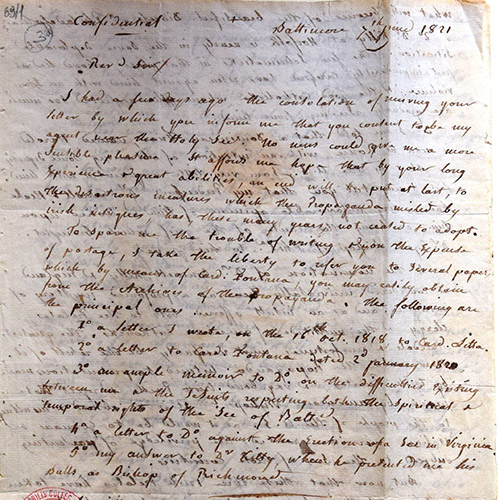 69H
34
Confidential
Baltimore June 1821
Rev.d Sir/
I had a few days ago the consolation of receiving your
letter by which you inform me that you consent to be my
agent near the Holy See. No news could give me a more
sensible pleasure. It affords me hope that by your long
experience & great abilities, an end will be put at last, to
the disastrous measures which the Propaganda misled by
irish intrigues, has these many years, not ceased to adopt.
To spare me the trouble of writing & you the expense
of postage, I take the liberty to refer you to several papers
which by means of Card. Fontana, you may easily obtain
from the Archives of the Propaganda. The following are
the principal ones
1° a letter, I wrote, on the 16th Oct. 1818 to Card. Litta.
2° a letter to Card. Fontana dated 2d January 1820
3° an ample memoir to D°. on the difficulties existing
between me & the Jesuits respecting both the spiritual &
temporal rights of the See of Balt.
4° a letter to D° against the erection of a See in Virginia
5° my answer to Dr Kelly when he presented me his
Bulls as Bishop of Richmond